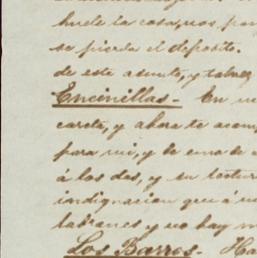 huele la cosa, nos par
se pierda el deposito.
de este asunto, y talvez
Encinillas.- En m
careta, y ahora te acom
para mi, y
á las dos, y su lectura
indignacion que á m
labranes y no hay m
Los Barros.- Ha